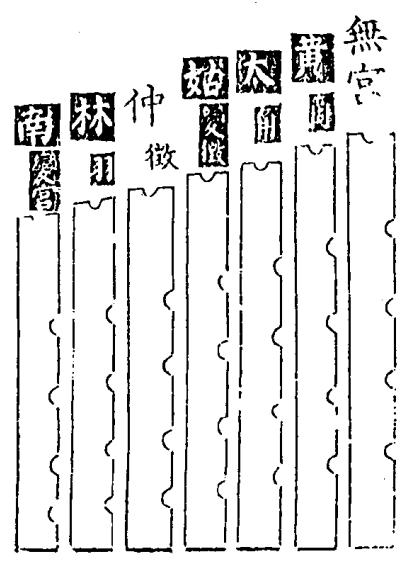 無宮
黃商
太角
姑變徵
仲徵
林羽
南變宮